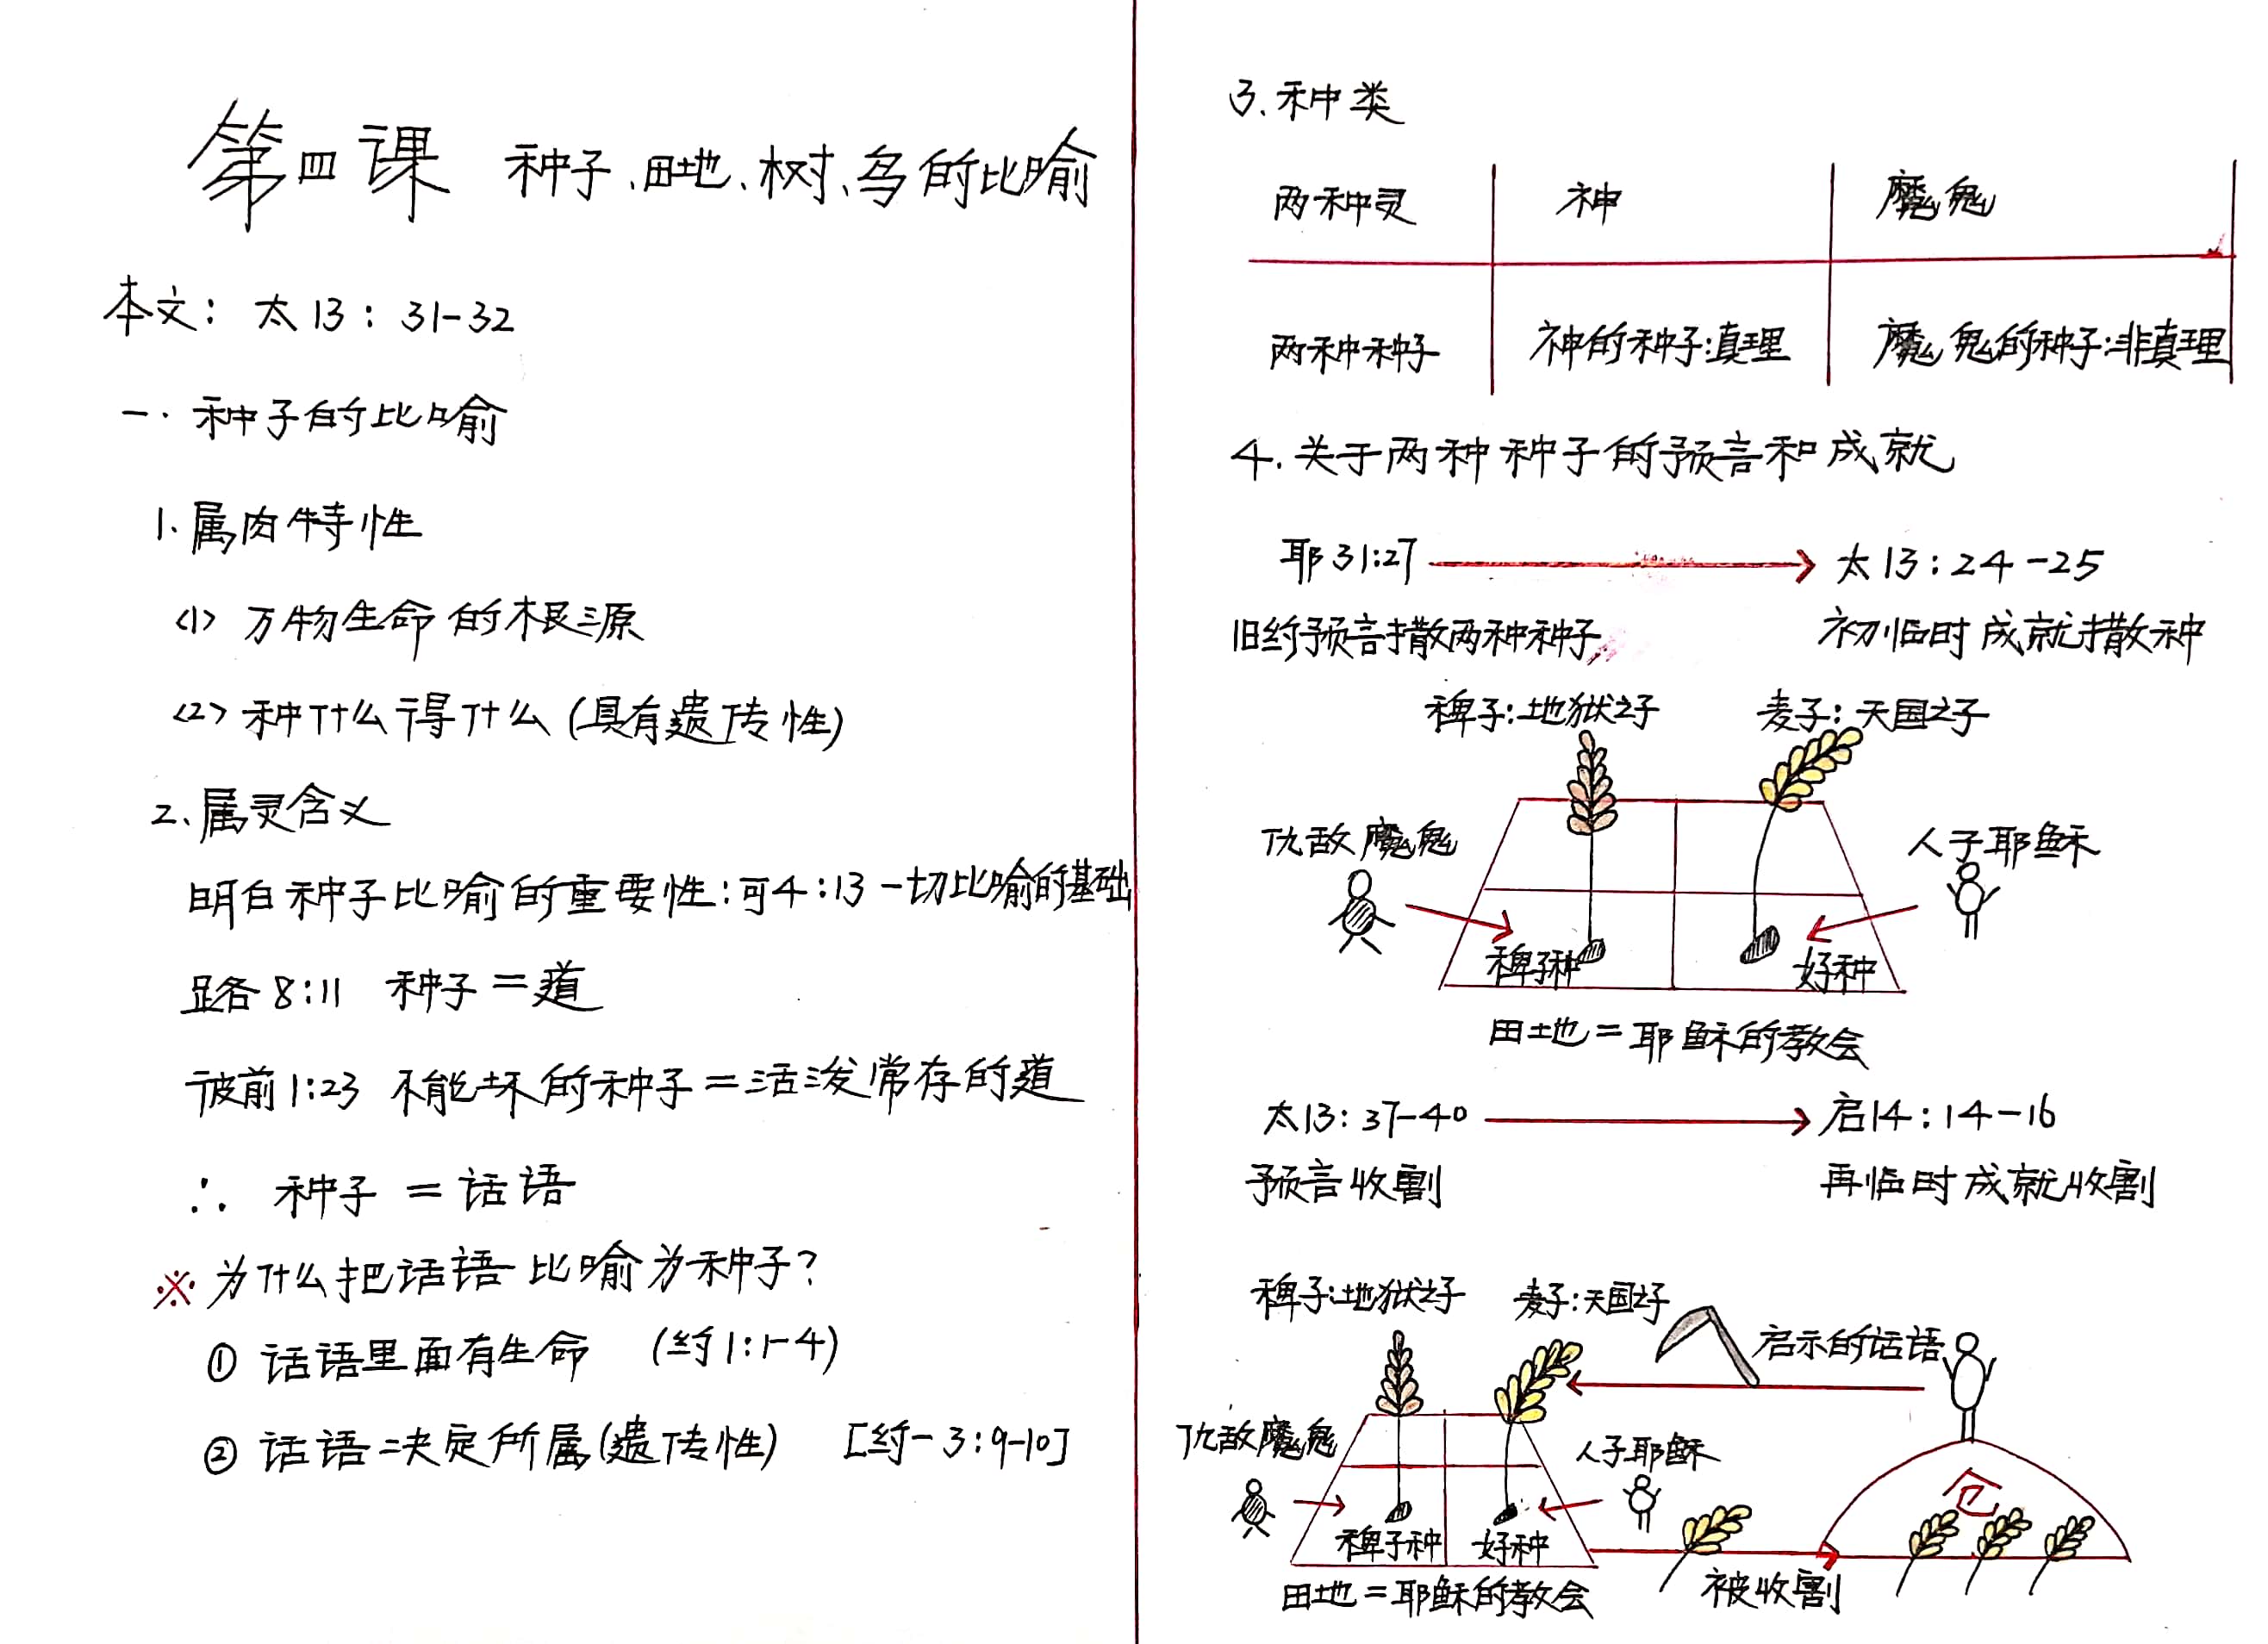 第四课 种子、田地、树、鸟的比喻
本文：太13：31-32
一.种子的比喻
1.属肉特性
<1> 万物生命的根源
<2> 种什么得什么(具有遗传性)
2.属灵含义
明白种子比喻的重要性：可4：13 一切比喻的基础
路8：11 种子＝道
彼前1：23 不能坏的种子＝活泼常存的道
∴ 种子＝话语
※为什么把话语比喻为种子？
① 话语里面有生命 (约1：1-4)
② 话语=决定所属(遗传性) [约一3：9-10]
3.种类
两种灵 神 魔鬼
两种种子 神的种子:真理 魔鬼的种子:非真理
4.关于两种种子的预言和成就
耶31：27 太13：24-25
旧约预言撒两种种子 初临时成就撒种
稗子：地狱之子 麦子：天国之子
仇敌魔鬼 人子耶稣
稗子种 好种
田地＝耶稣的教会
太13：37-40 启14：14-16
预言收割 再临时成就收割
稗子:地狱之子 麦子:天国之子 启示的话语
仇敌魔鬼 人子耶稣 仓
稗子种 好种
田地＝耶稣的教会 被收割